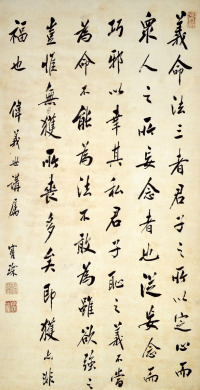 義命法三者君子之所以定心而
衆人之所妄念者也從妄念而
巧邪以幸其私君子恥之義不當
為命不能為法不敢為雖欲強之
豈惟無獲所喪多矣即獲亦非
福也
偉義世講屬
寶琛